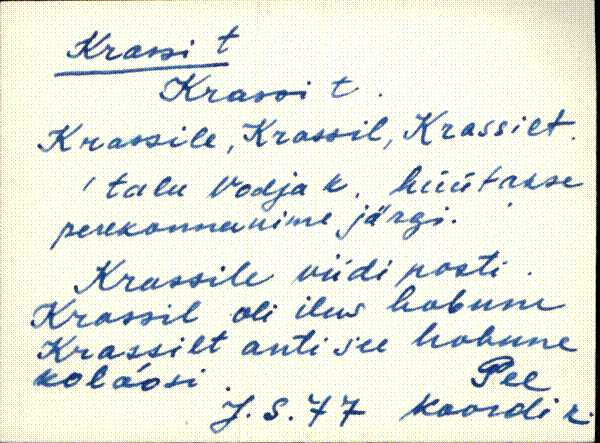 Krassi t
Krassi t.
Krassile, Krassil, Krassilt.
' talu Vodja k. hüütasse
perekonnanime järgi.
Krassile viidi posti.
Krassil oli ilus hobune
Krassilt anti see hobune
kolóosi.
Pee
J. S. 77 Koordi k.